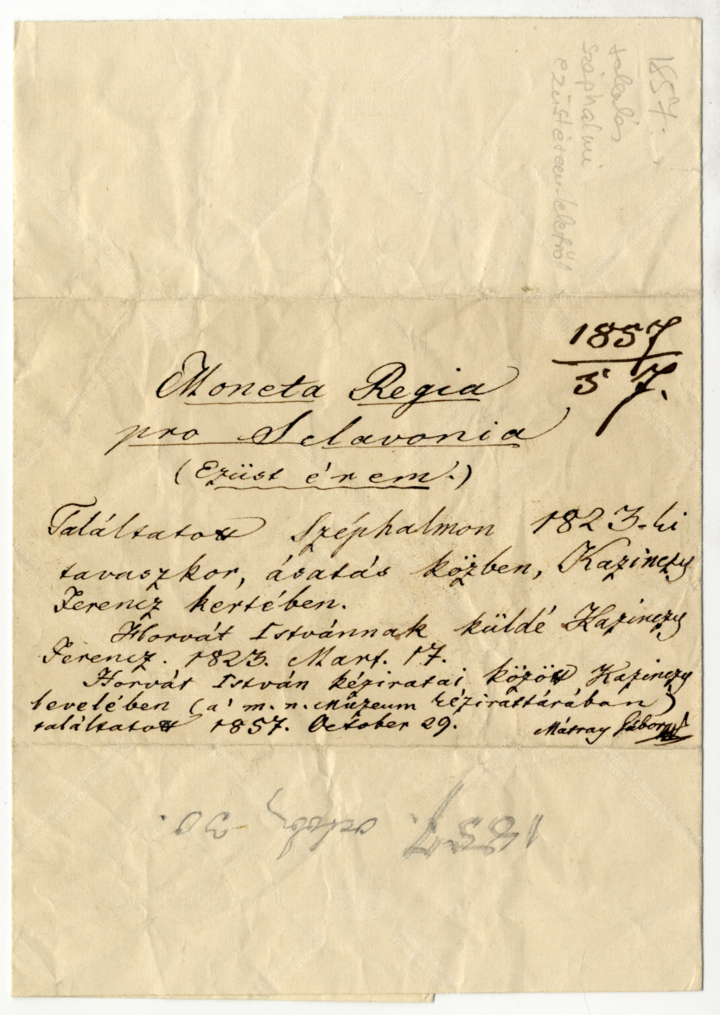 1857.
találás
széphalmi
ezüstéremleletről
1857
57.
Moneta Regia
pro Sclavonia
(Ezüst érem.)
Találtatott Széphalmon 1823-ki
tavaszkor, ásatás közben, Kazinczy
Ferencz kertében.
Horvát Istvánnak küldé Kazinczy
Ferencz. 1823. Mart. 17.
Horvát István kéziratai között Kazinczy
levelében (a' m. n. Múzeum kézirattárában)
találtatott 1857. October 29.
Mátray Gábor
1857. octob. 30.